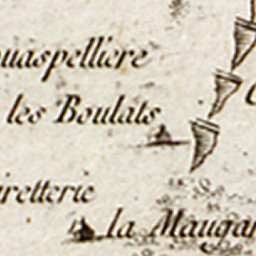 uaspelliere
les Boulats
retterie
la Maugar